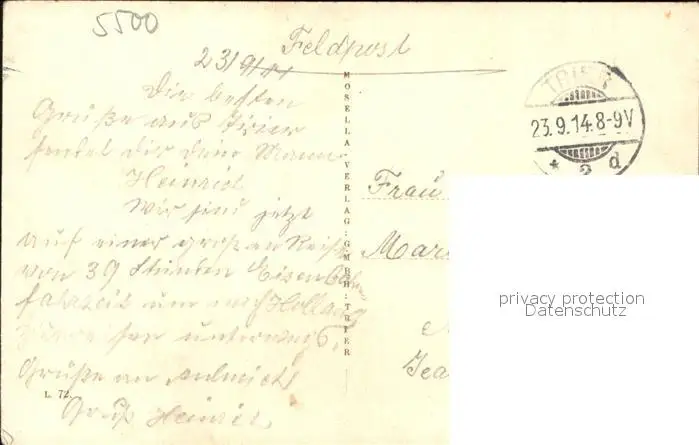 5500
Feldpost
23/9/14
Die besten
Grüße aus Trier
sendet dir dein Mann
Heinrich
Wir sind jetzt
auf einer großen Reise
von 39 Stunden Eisenbahn
fahrzeit und nach Holland
unterwegs,
Grüße an
Gruß Heinrich
L. 72.
MOSELLA-VERLAG: G·M·B·H: TRIER
TRIER
23.9.14.8-9V
* 2 d
Frau
privacy protection
Datenschutz